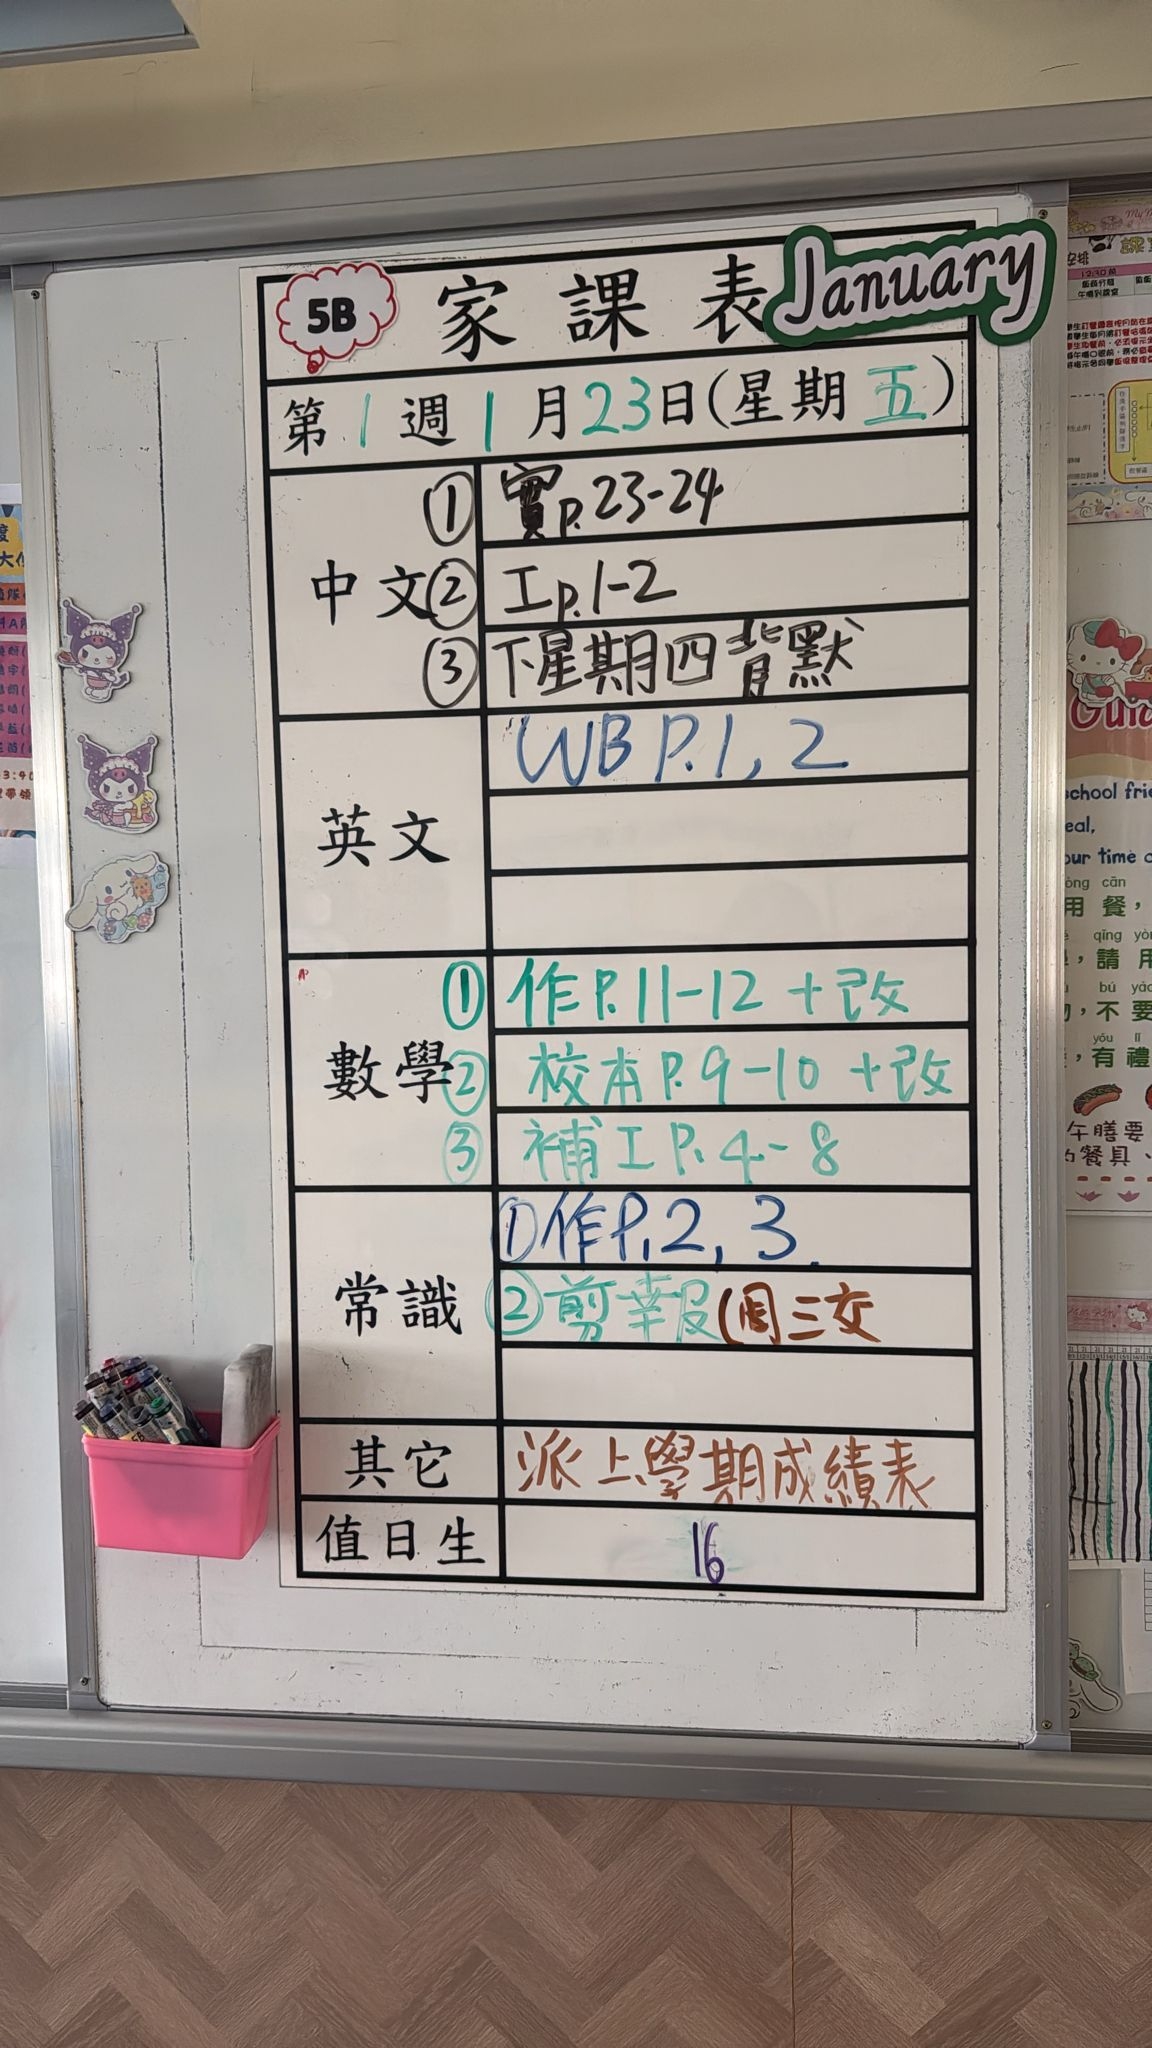 5B
家課表
January
第1週1月23日(星期五)
中文
① 實p.23-24
② 工p.1-2
③ 下星期四背默
英文
WB P.1, 2
數學
① 作P.11-12 +改
② 校本P.9-10 +改
③ 補工P.4-8
常識
①作P.2, 3.
②剪報(周三交
其它
派上學期成績表
值日生
16
12:30前
school frie
eal,
our time
òng cān
用餐,
qǐng yò
請用
bú yào
不要
yǒu lǐ
有禮
午膳要
餐具、